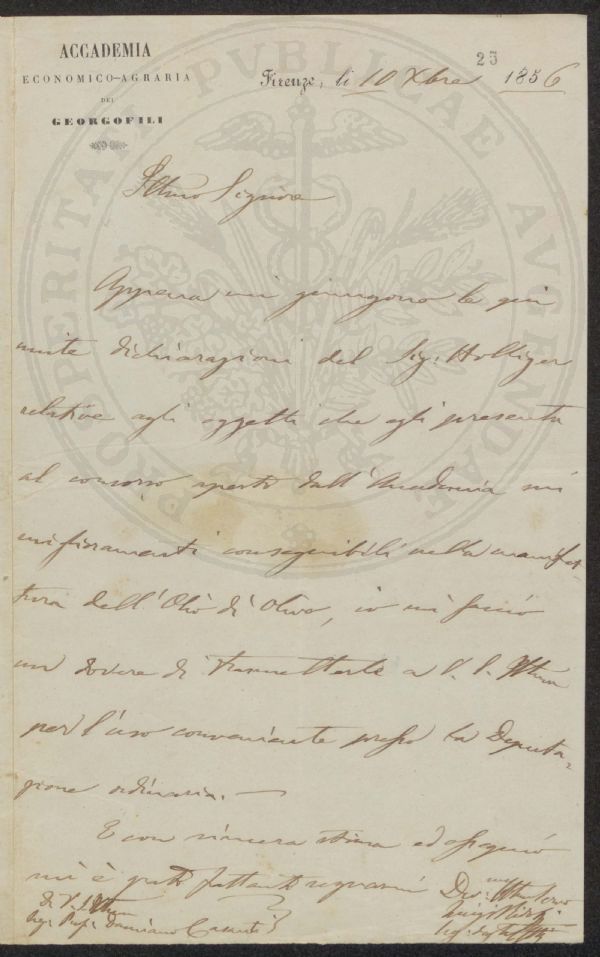 25
ACCADEMIA
ECONOMICO-AGRARIA
DEI
GEORGOFILI
Firenze, li 10 Xbre 1856
PROSPERITATI PVBLICAE AVGENDAE
Illmo Signore
Appena mi giungono le qui
unite dichiarazioni del Sig. Holliger
relative agli oggetti che egli presenta
al concorso aperto dall'Accademia sui
miglioramenti conseguibili nella manifat-
tura dell'Olio di Olivo, io mi faccio
un dovere di trasmetterle a V. S. Illma
per l'uso conveniente presso la Deputa-
zione ordinaria. —
E con sincera stima ed ossequio
mi è grato frattanto segnarmi
Di V. S. Illma
Sig. Prof.
Dev.mo
Luigi